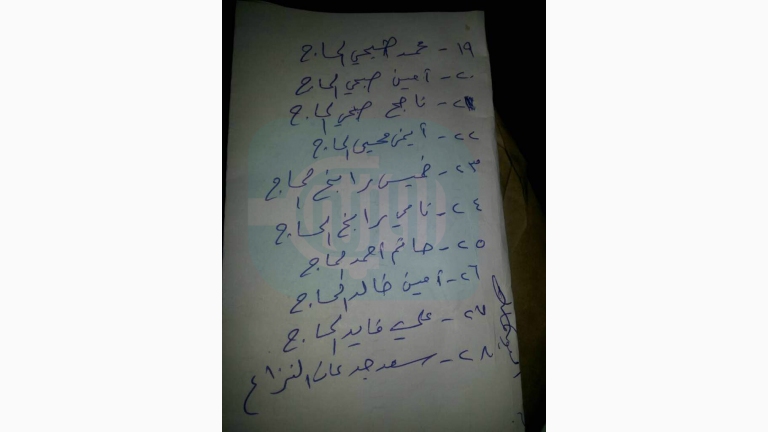 ١٩- محمد صبحي الحاج
٢٠- أمين صبحي الحاج
٢١- ناجح صبحي الحاج
٢٢- أيمن محيي الحاج
٢٣- خميس برابخ الحاج
٢٤- نامي برابخ الحاج
٢٥- حاتم احمد الحاج
٢٦- أمين خالد الحاج
٢٧- علي فايد الحاج
٢٨- سعد جدعان النزاع